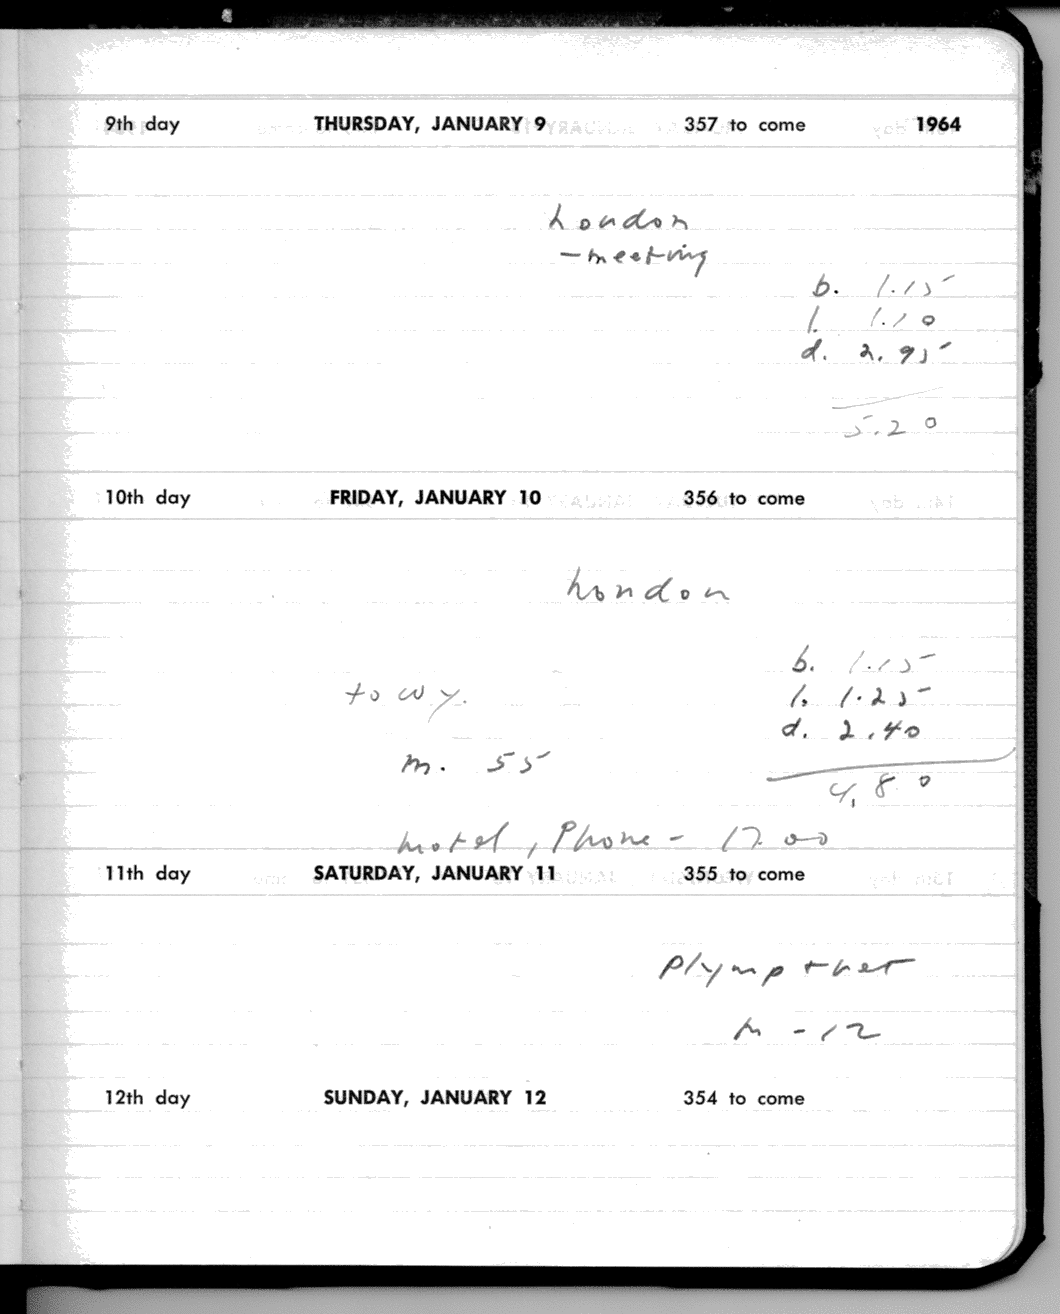 9th day THURSDAY, JANUARY 9 357 to come 1964
London
- meeting
b. 1.15
l. 1.10
d. 2.95
5.20
10th day FRIDAY, JANUARY 10 356 to come
London
b. 1.15
to Wy. l. 1.25
d. 2.40
m. 55
4.80
hotel, Phone - 17.00
11th day SATURDAY, JANUARY 11 355 to come
Plymptner
m - 12
12th day SUNDAY, JANUARY 12 354 to come